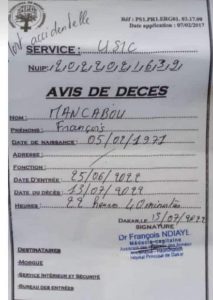 Réf : PS1.PR1.ERG01. 03.17.00
Date application : 07/02/2017
Mort accidentelle
SERVICE : USIC
NUIP: 2022021639
AVIS DE DECES
NOM : MANCABOU
PRÉNOMS : François
DATE DE NAISSANCE : 05/02/1971
ADRESSE :
FONCTION :
DATE D'ENTRÉE : 25/06/2022
DATE DU DÉCÈS : 13/07/2022
HEURES : 22 heures 40 minutes
DAKAR, LE 13/07/2022
SIGNATURE
Dr François NDIAYE
Médecin-capitaine
Hôpital Principal de Dakar
DESTINATAIRES
-MORGUE
-SERVICE INTÉRIEUR ET SÉCURITÉ
-BUREAU DES ENTRÉES